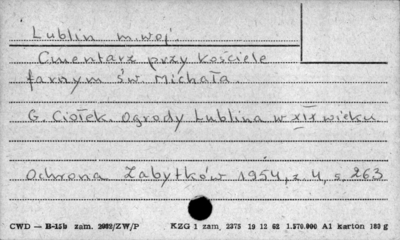 Lublin m. woj
Cmentarz przy kościele
farnym św Michała
G. Ciołek. Ogrody Lublina w XIX wieku
Ochrona Zabytków 1954, z 4, s. 263
CWD — B-15b zam. 2082/ZW/P KZG 1 zam. 2375 19 12 62 1.570.000 A1 karton 183 g